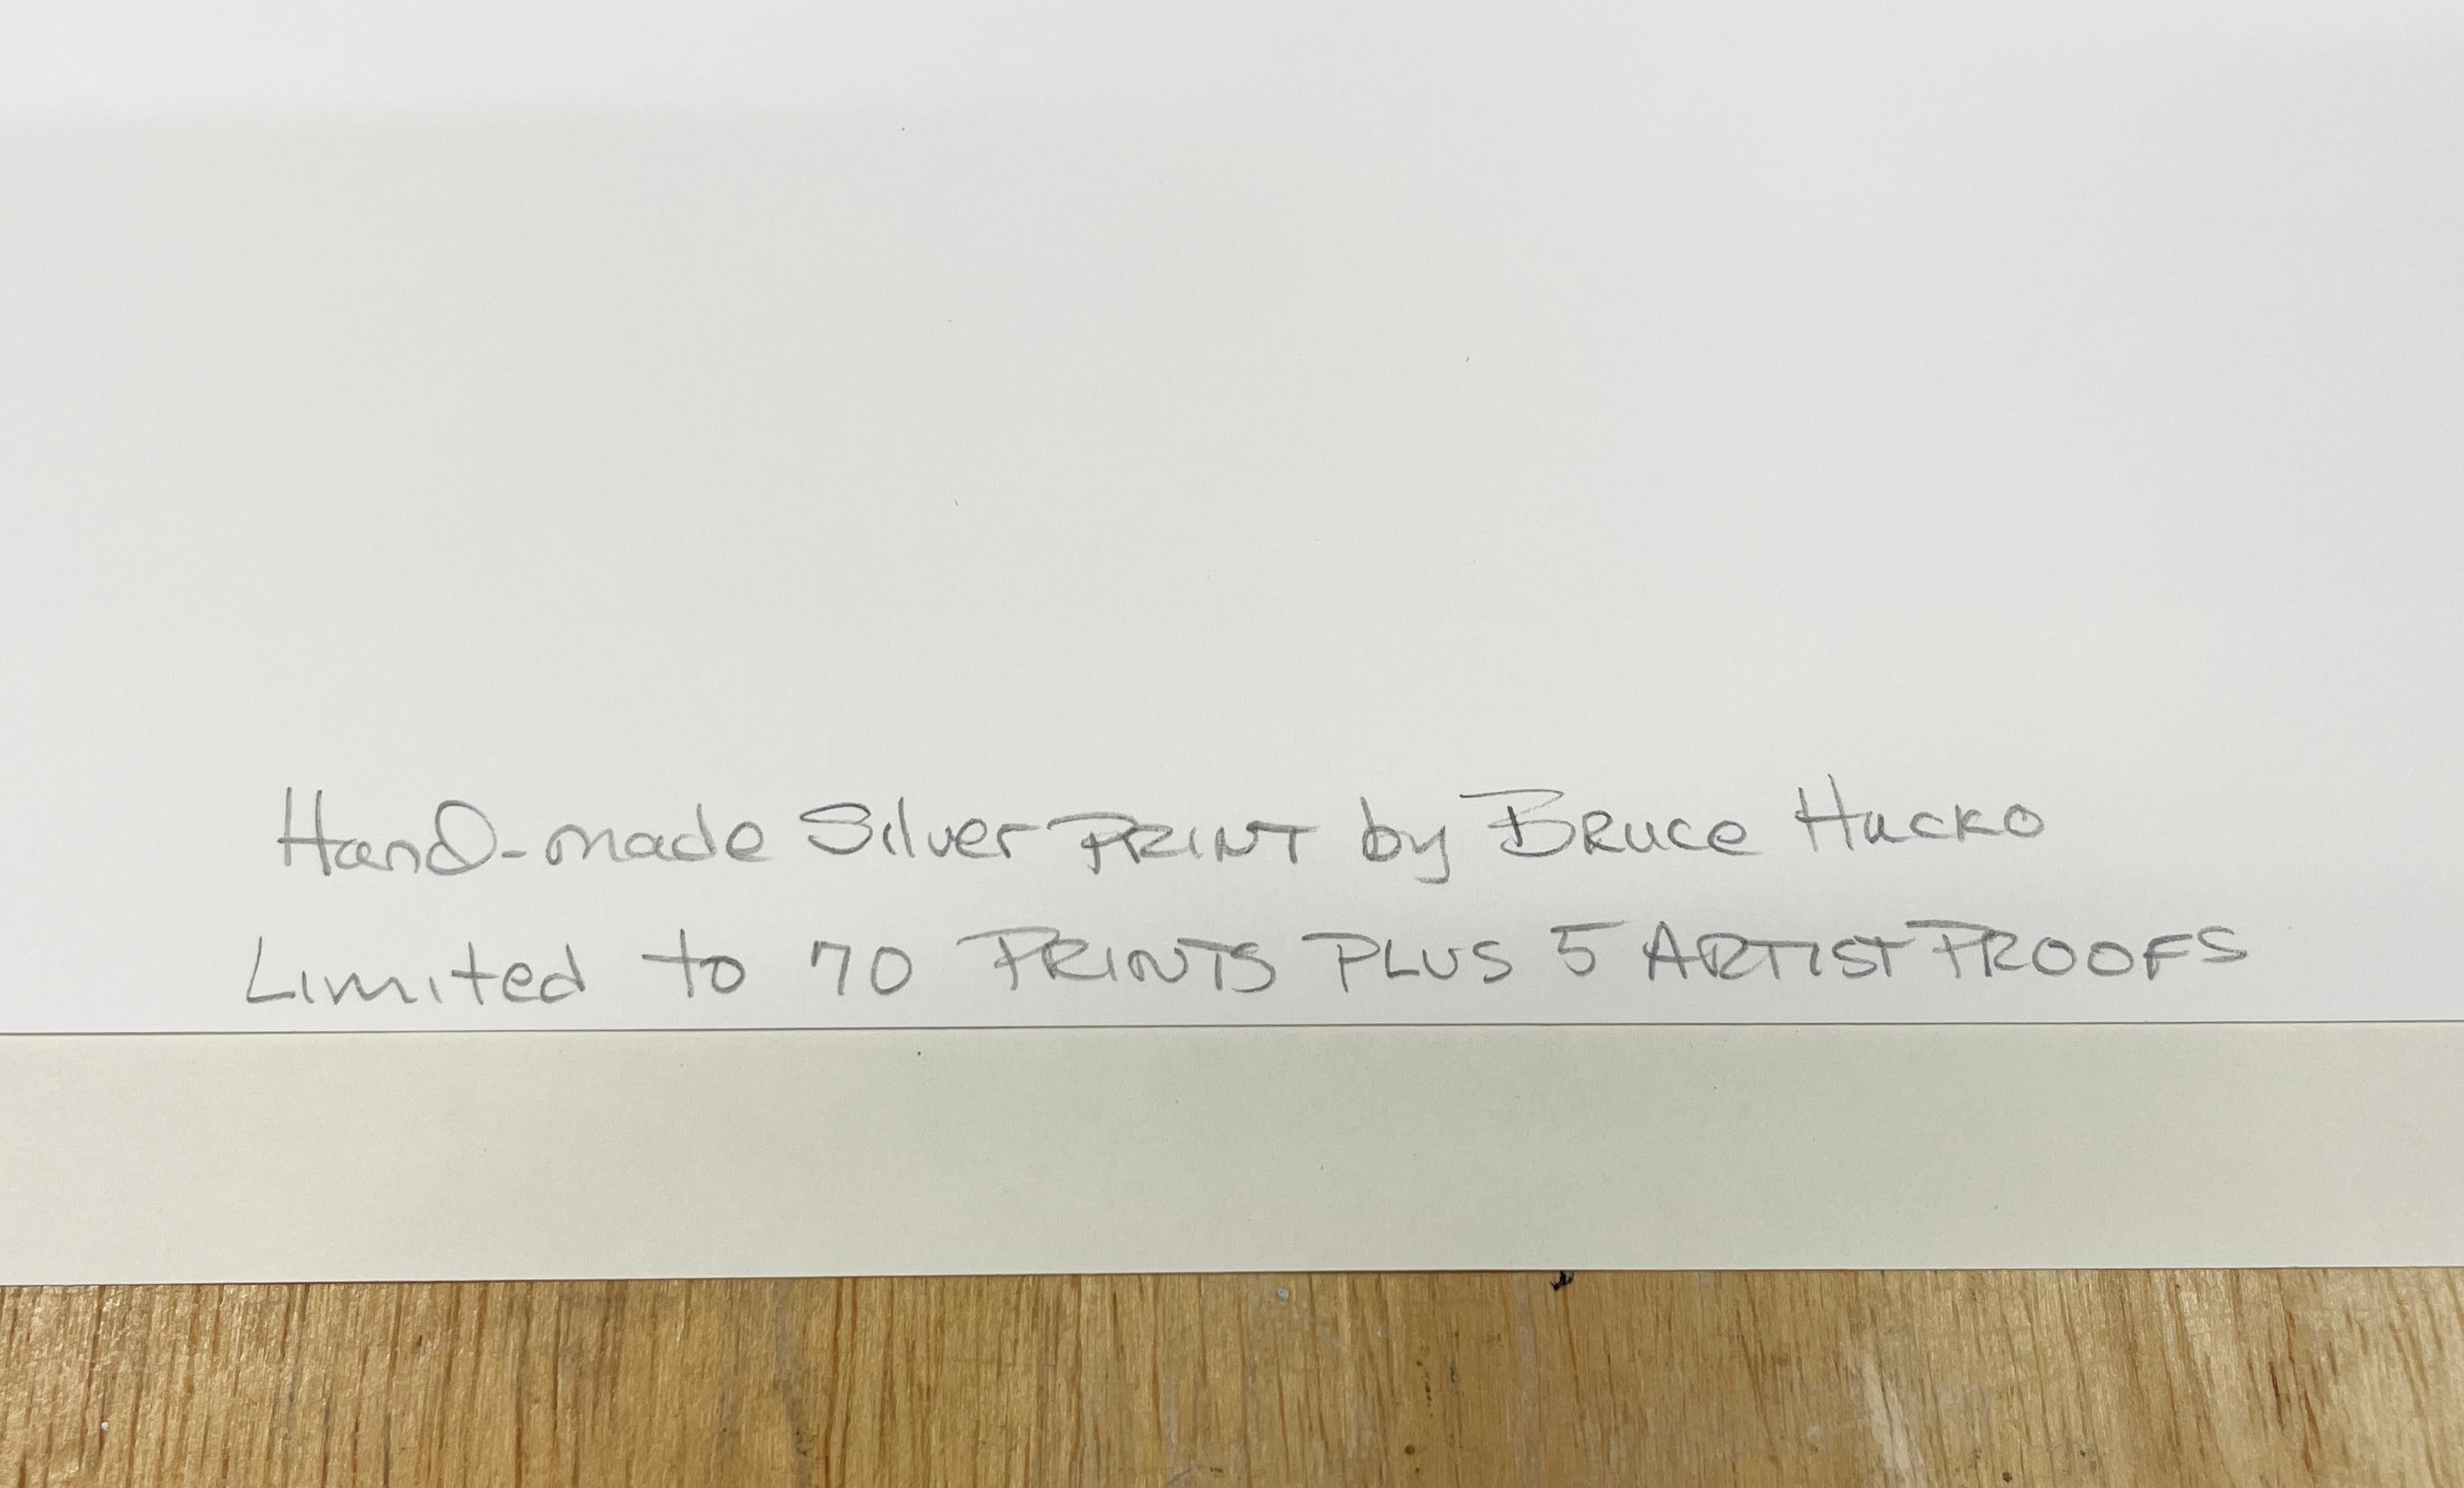 Hand-made Silver PRINT by BRUCE HUCKO
Limited to 70 PRINTS PLUS 5 ARTIST PROOFS